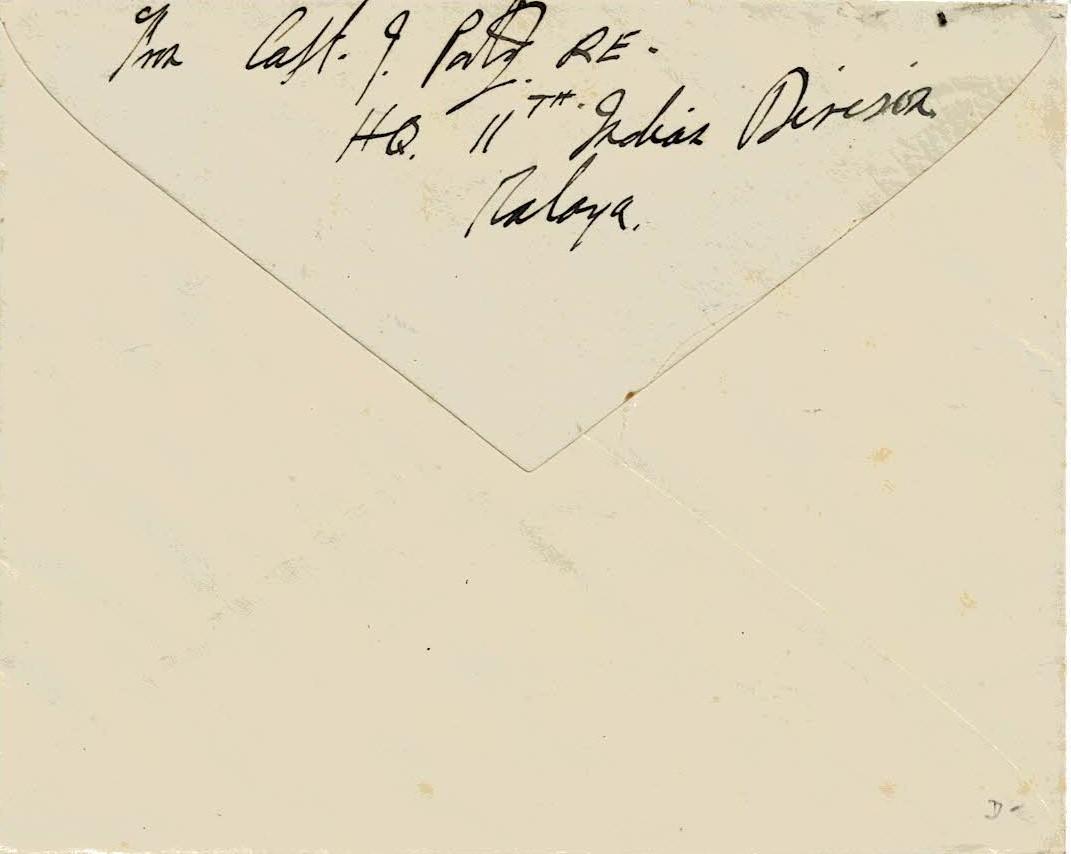 From Capt. J. RE.
HQ. 11TH. Indian Division
Malaya.
D-